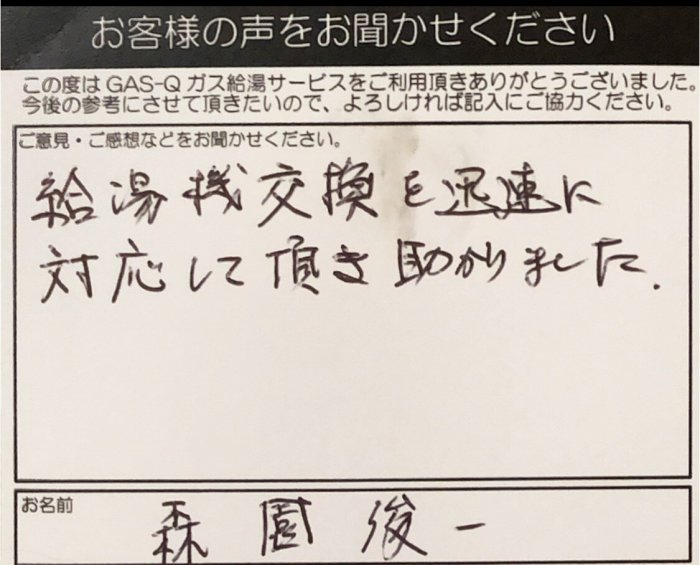 お客様の声をお聞かせください
この度は GAS-Q ガス給湯サービスをご利用頂きありがとうございました。
今後の参考にさせて頂きたいので、よろしければ記入にご協力ください。
ご意見・ご感想などをお聞かせください。
給湯機交換を迅速に
対応して頂き助かりました.
お名前
森園俊一